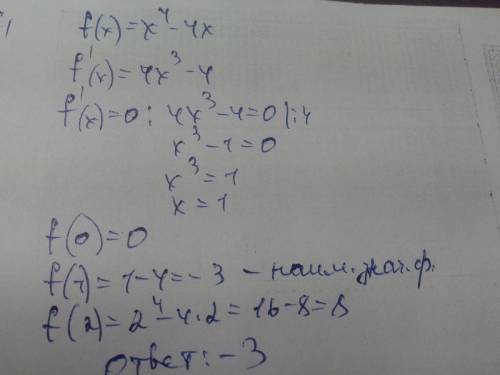 f(x)=x⁴-4x
f'(x)=4x³-4
f'(x)=0: 4x³-4=0 |:4
x³-1=0
x³=1
x=1
f(0)=0
f(1)=1-4=-3 - наим. знач. ф.
f(2)=2⁴-4·2=16-8=8
Ответ: -3